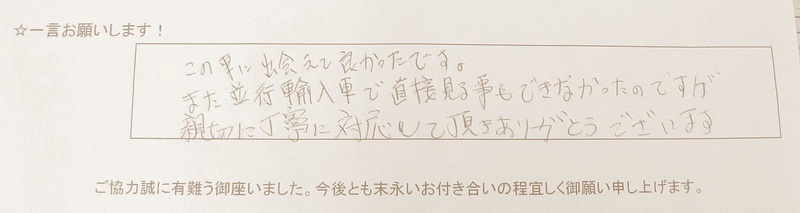 ☆一言お願いします!
この車に出会えて良かったです。
また並行輸入車で直接見る事もできなかったのですが
親切に丁寧に対応して頂きありがとうございます
ご協力誠に有難う御座いました。今後とも末永いお付き合いの程宜しく御願い申し上げます。